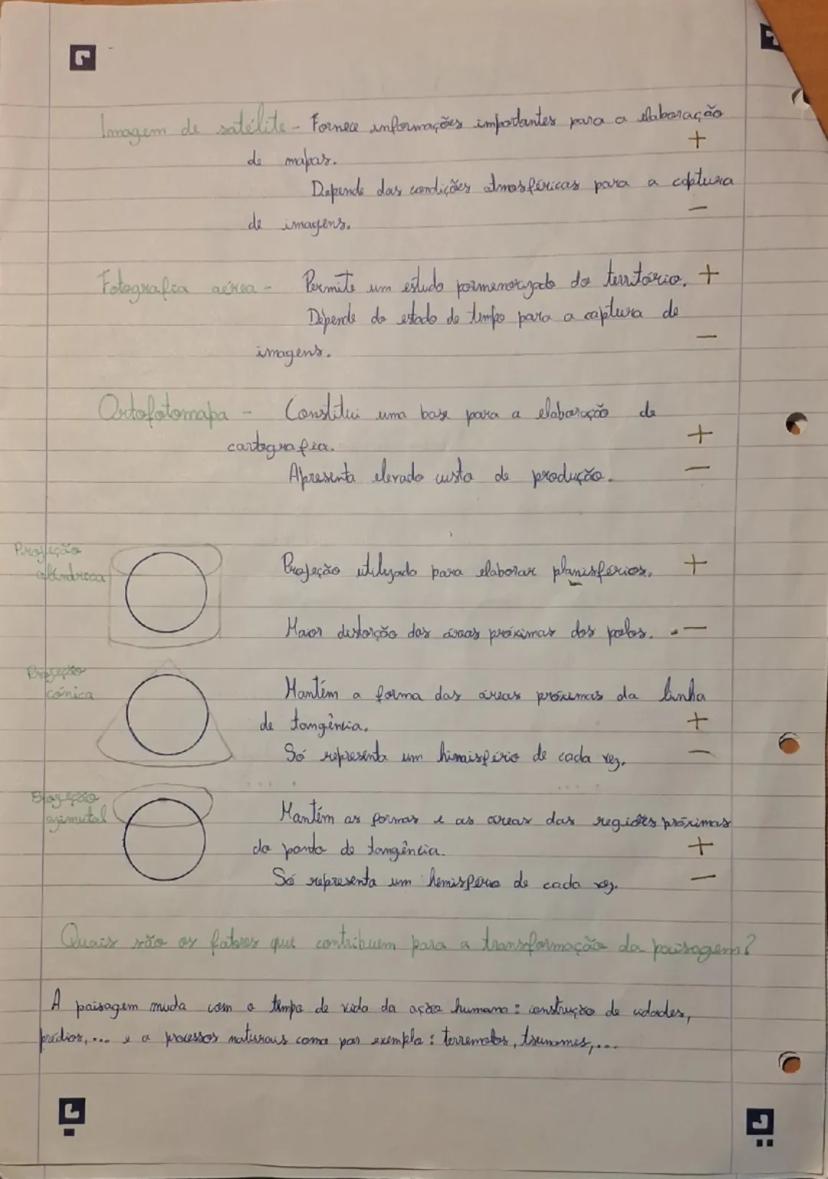 Imagem de satélite - Fornece informações importantes para a elaboração
+
de mapas.
Depende das condições atmosféricas para a captura
-
de imagens.
Fotografia aérea - Permite um estudo pormenorizado do território. +
Depende do estado do tempo para a captura de
-
imagens.
Ortofotomapa - Constitui uma base para a elaboração de
+
cartografia.
Apresenta elevado custo de produção. -
Projeção
cilíndrica
Projeção utilizada para elaborar planisférios. +
Maior distorção das áreas próximas dos polos. -
Projeção
cónica
Mantém a forma das áreas próximas da linha
de tangência. +
Só representa um himisfério de cada vez. -
Projeção
azimutal
Mantém as formas e as areas das regiões próximas
do ponto de tangência. +
Só representa um hemisfério de cada vez. -
Quais são os fatores que contribuem para a transformação da paisagem?
A paisagem muda com o tempo de vido da ação humana: construção de cidades,
prédios,... e a processos naturais como por exemplo: terremotos, tsunames,...